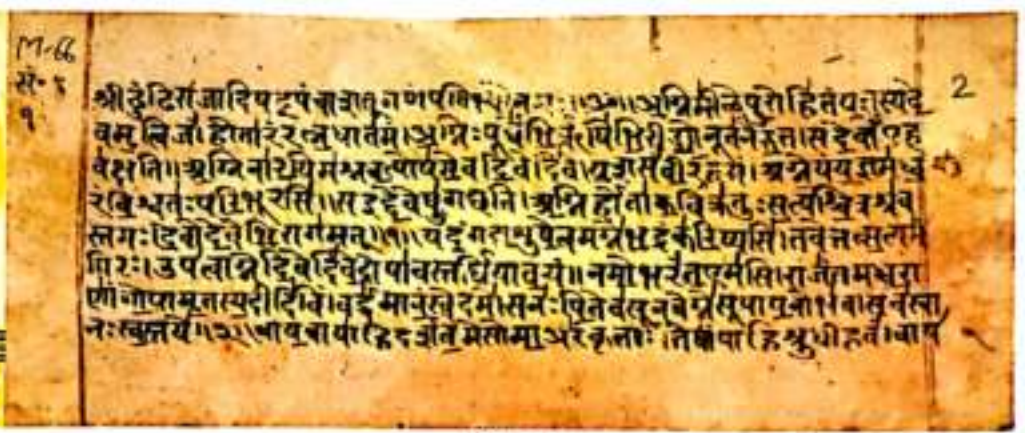 M-66
सं॰ १
१
2
श्री अग्निमीळेपुरोहितंयज्ञस्यदे
वमृत्विजं।होतारंरत्नधातमं।अग्निःपूर्वेभिर्ऋषिभिरीड्योनूतनैरुत।सदेवाँएह
वक्षति॥अग्निनारयिमश्नवत्पोषमेवदिवेदिवे।यशसंवीरवत्तमं।अग्नेयंयज्ञमध्व
रंविश्वतःपरिभूरसि।सइद्देवेषुगच्छति।अग्निर्होताकविक्रतुःसत्यश्चित्रश्रव
स्तमः।देवोदेवेभिरागमत्॥१॥यदंगदाशुषेत्वमग्नेभद्रंकरिष्यसि।तवेत्तत्सत्यमं
गिरः।उपत्वाग्नेदिवेदिवेदोषावस्तर्धियावयं॥नमोभरंतएमसि।राजंतमध्वरा
णांगोपामृतस्यदीदिविं।वर्धमानंस्वेदमे।सनःपितेवसूनवेग्नेसूपायनोभव।सचस्वा
नःस्वस्तये॥२॥वायवायाहिदर्शतेमेसोमाअरंकृताः।तेषांपाहिश्रुधीहवं।वाय